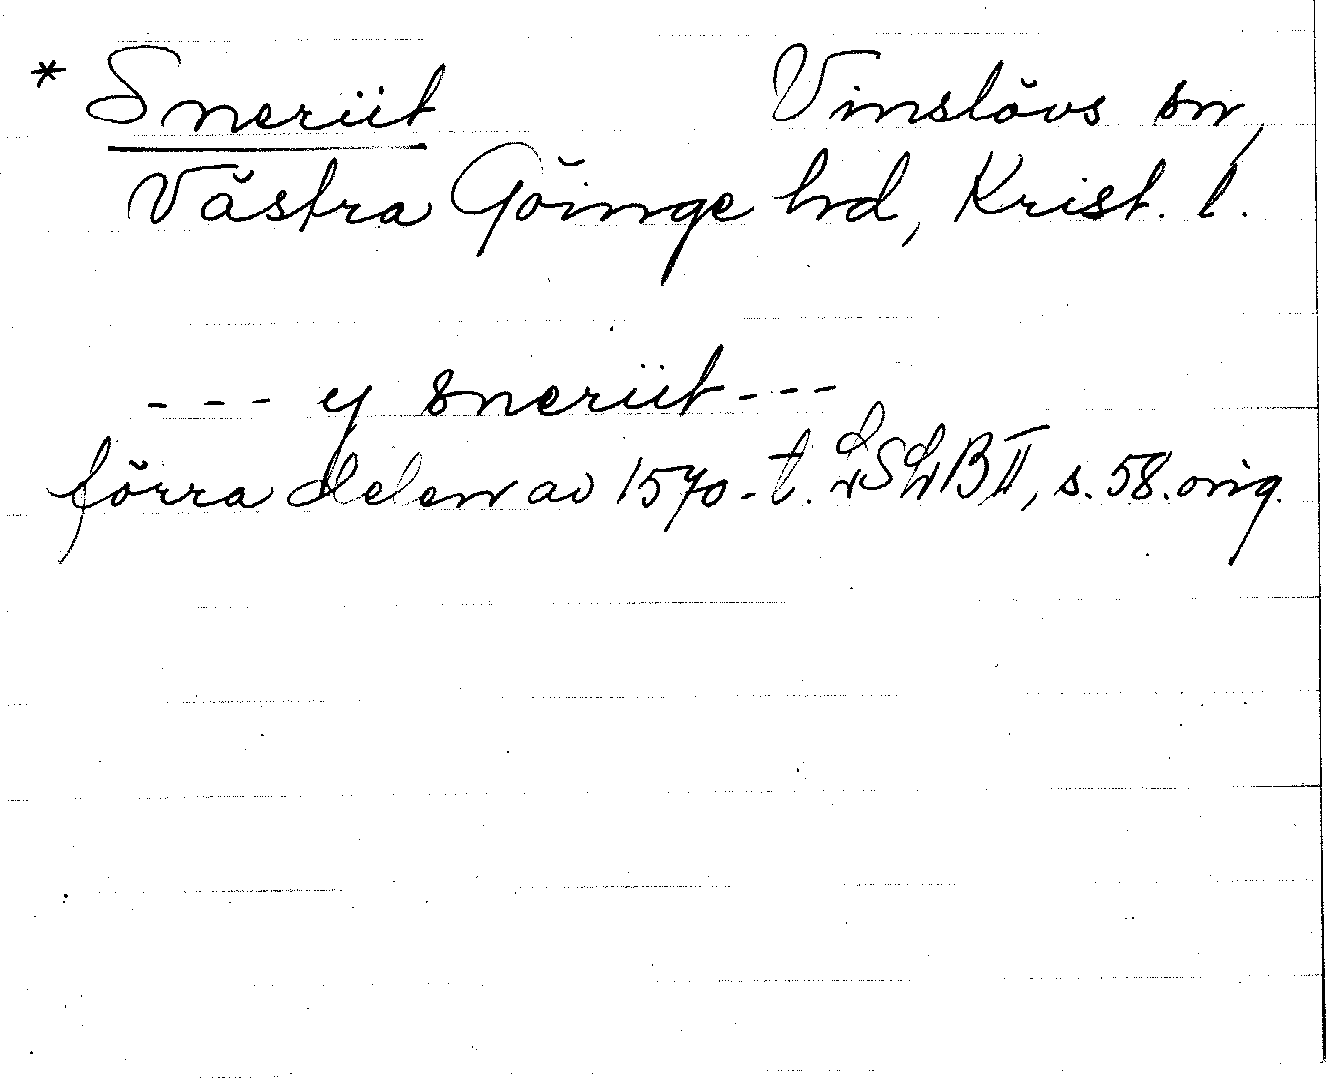 * Sneriit Vinslövs sn,
Västra Göinge hd, Krist. l.
--- y sneriit ---
förra delen av 1570-t. LSLB II, s. 58. orig.